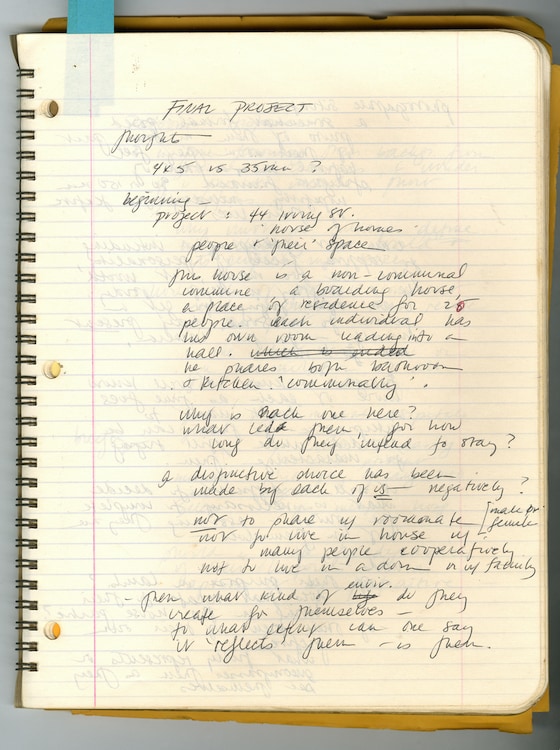 FINAL PROJECT
thoughts
4x5 vs 35mm ?
beginning —
project : 44 Irving St.
'house of homes'
people + 'their' space
this house is a non-communal
commune a boarding house,
a place of residence for
people. each individual has
his own room leading into a
hall. which is ended
he shares both bathroom
+ kitchen 'communally'.
why is each one here?
what led them for how
long do they intend to stay?
a distinctive choice has been
made by each of us negatively ?
not to share w/ roommate [male or female
not to live in house w/
many people cooperatively
not to live in a dorm or w/ family
envir.
- then what kind of life do they
create for themselves —
to what extent can one say
it 'reflects' them - is them.